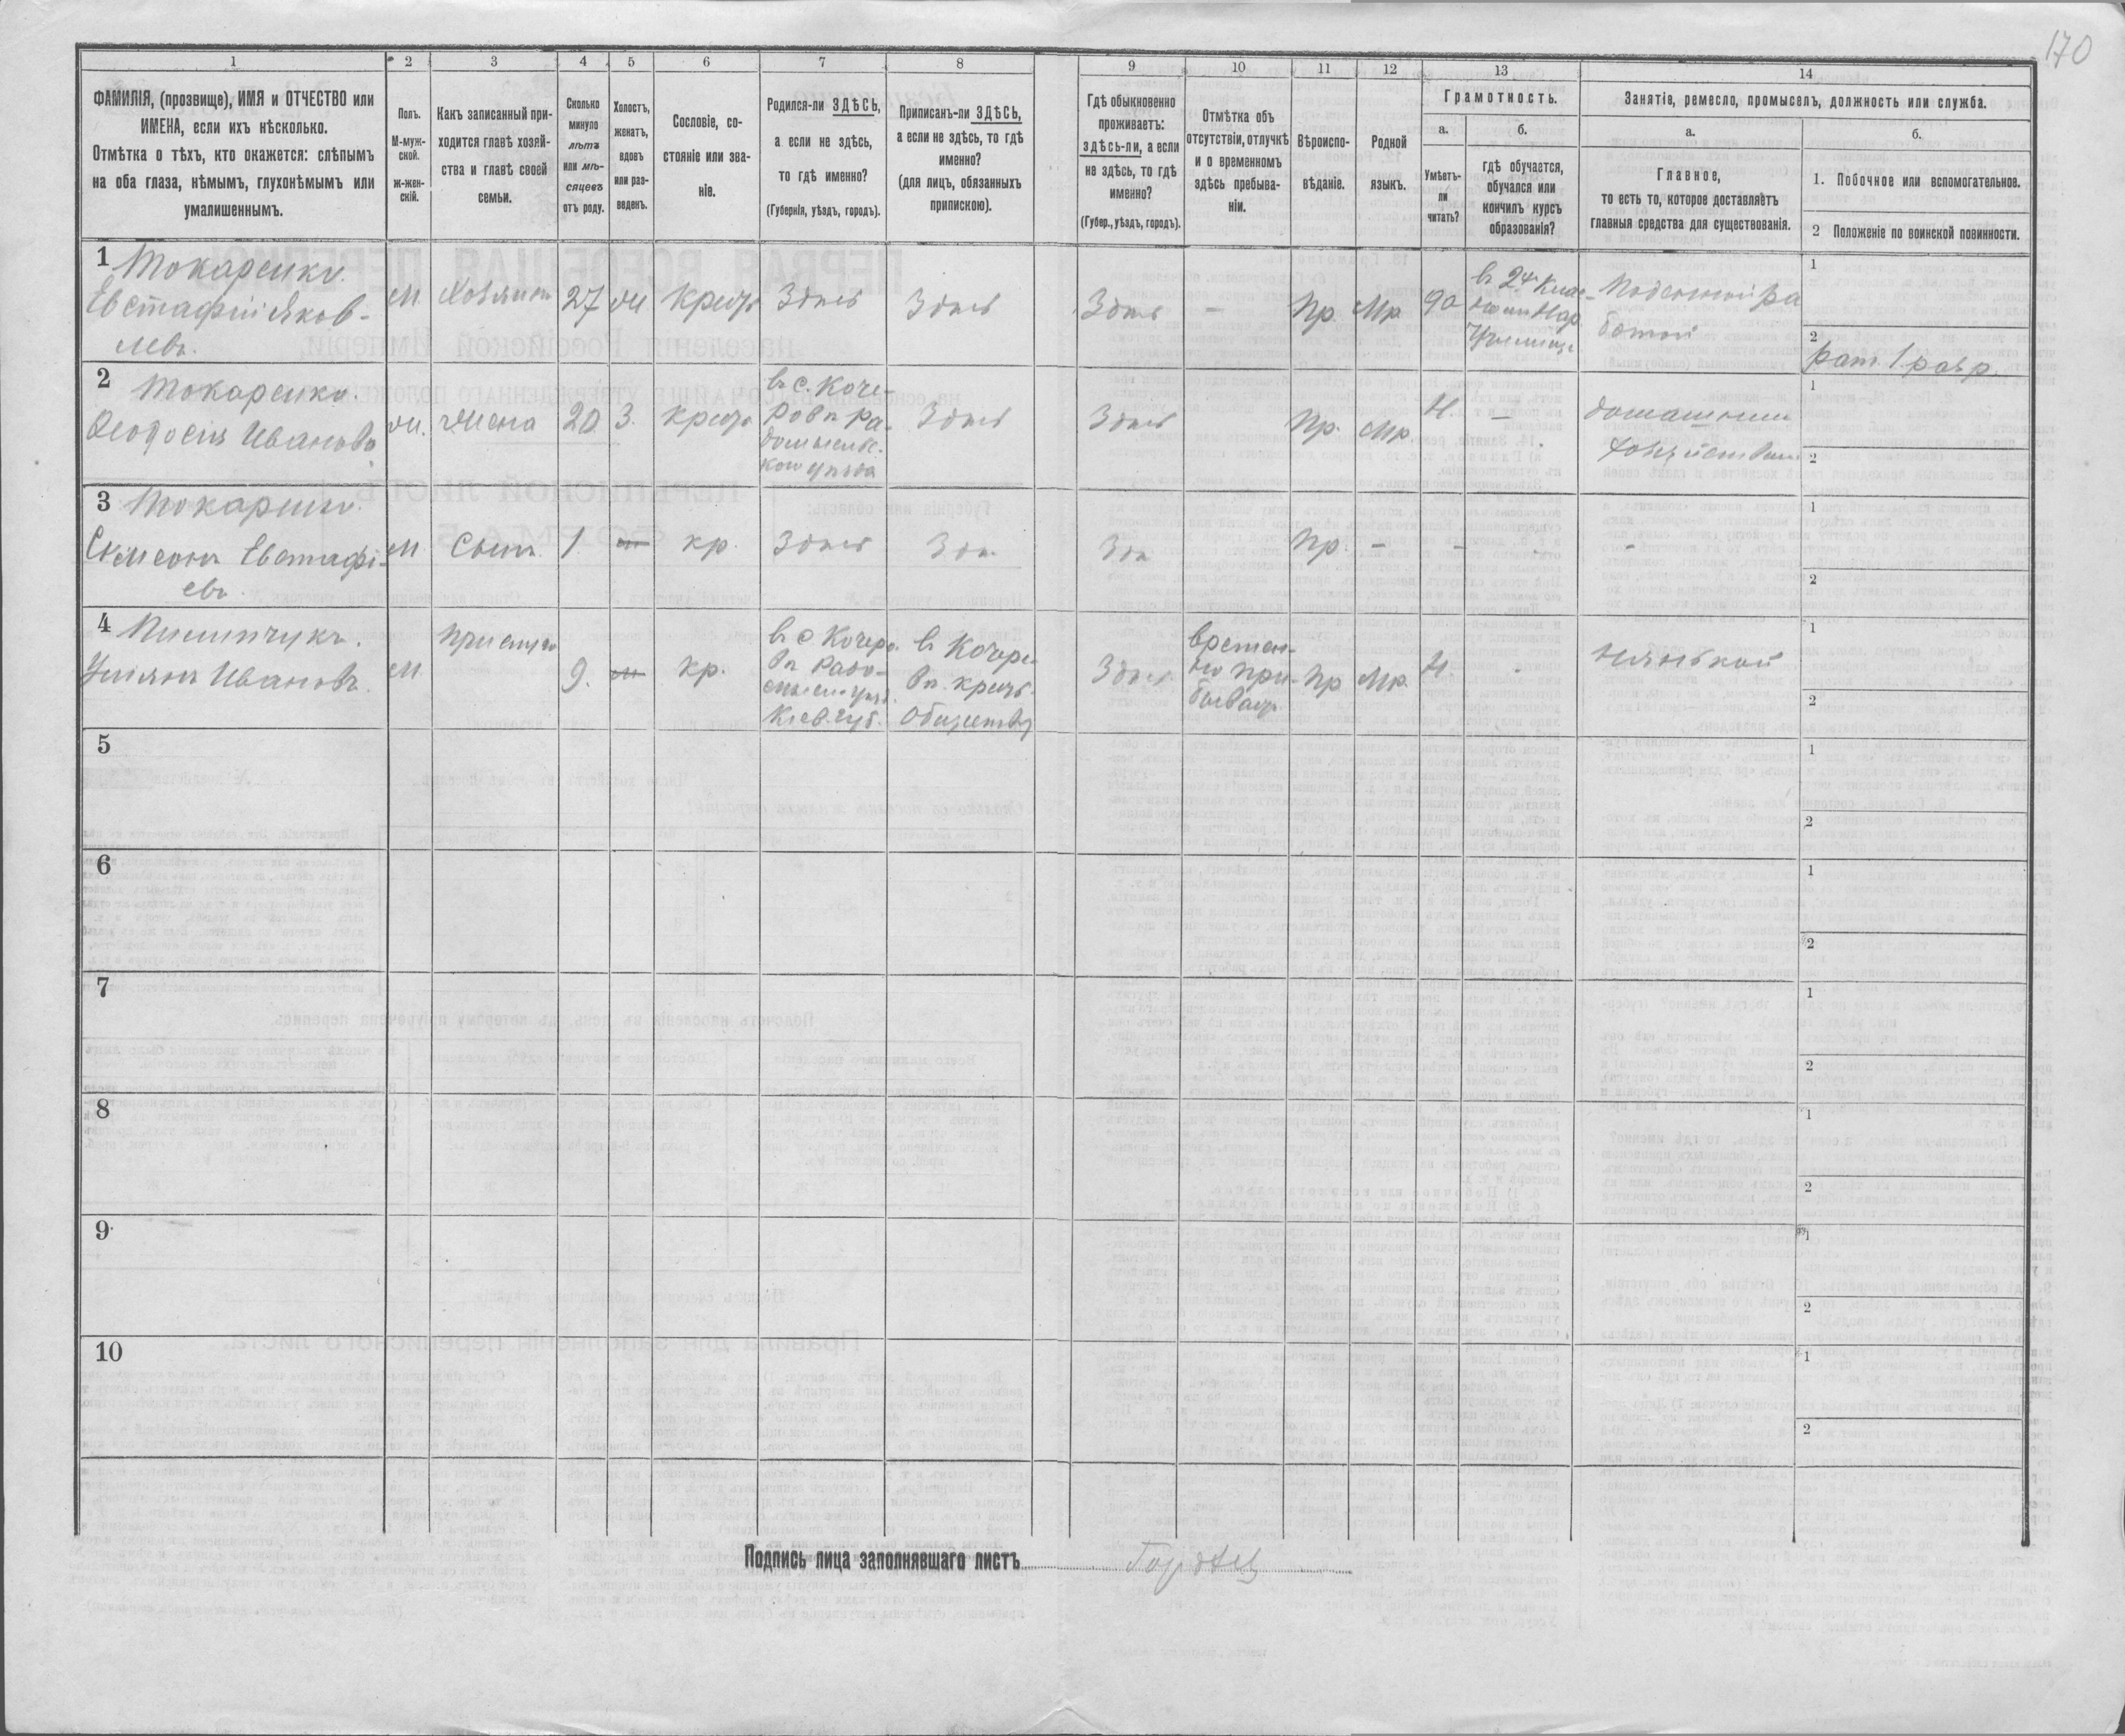 170
1
2
3
4
5
6
7
8
9
10
11
12
13
14
ФАМИЛІЯ, (прозвище), ИМЯ и ОТЧЕСТВО или
ИМЕНА, если ихъ нѣсколько.
Отмѣтка о тѣхъ, кто окажется: слѣпымъ
на оба глаза, нѣмымъ, глухонѣмымъ или
умалишеннымъ.
Полъ.
М-муж-
ской.
ж-жен-
скій.
Какъ записанный при-
ходится главѣ хозяй-
ства и главѣ своей
семьи.
Сколько
минуло
лѣтъ
или мѣ-
сяцевъ
отъ роду.
Холостъ,
женатъ,
вдовъ
или раз-
веденъ.
Сословіе, со-
стояніе или зва-
ніе.
Родился-ли ЗДѢСЬ,
а если не здѣсь,
то гдѣ именно?
(Губернія, уѣздъ, городъ).
Приписанъ-ли ЗДѢСЬ,
а если не здѣсь, то гдѣ
именно?
(для лицъ, обязанныхъ
припискою).
Гдѣ обыкновенно
проживаетъ:
здѣсь-ли, а если
не здѣсь, то гдѣ
именно?
(Губер., уѣздъ, городъ).
Отмѣтка объ
отсутствіи, отлучкѣ
и о временномъ
здѣсь пребыва-
ніи.
Вѣроиспо-
вѣданіе.
Родной
языкъ.
Грамотность.
а.
Умѣетъ-
ли
читать?
б.
гдѣ обучается,
обучался или
кончилъ курсъ
образованія?
Занятіе, ремесло, промыселъ, должность или служба.
а.
Главное,
то есть то, которое доставляетъ
главныя средства для существованія.
б.
1. Побочное или вспомогательное.
2 Положеніе по воинской повинности.
1 Токаренко.
Евстафій Яков-
левъ.
М. Хозяинъ 27 ж крест Здѣсь Здѣсь Здѣсь - Пр. Мр да
въ 2х клас-
Нар.
Училищѣ
Поденной ра
ботой
1
2
рат. 1 разр.
2 Токаренко.
Ѳеодосія Иванова
ж. жена 20 З. крест
въ с. Коче-
ровѣ Ра-
домысльс.
ком уѣзда
Здѣсь Здѣсь Пр. Мр. Н. -
домашним
хозяйством
1
2
3 Токаренко.
Симеонъ Евстафі-
евъ.
М Сынъ 1 кр. Здѣсь Здѣ. Здѣ Пр. - - . -
1
2
4 Пилипчукъ.
Ульянъ Ивановъ.
М 9. кр.
въ с Кочеро.
вѣ Радо-
Кіев. губ.
въ Кочеро-
вѣ. крест.
Обществу
Здѣсь
времен-
но при-
бываю
Пр Мр. Н - нянькой
1
2
5
1
2
6
1
2
7
1
2
8
1
2
9
1
2
10
1
2
Подпись лица заполнявшаго листъ